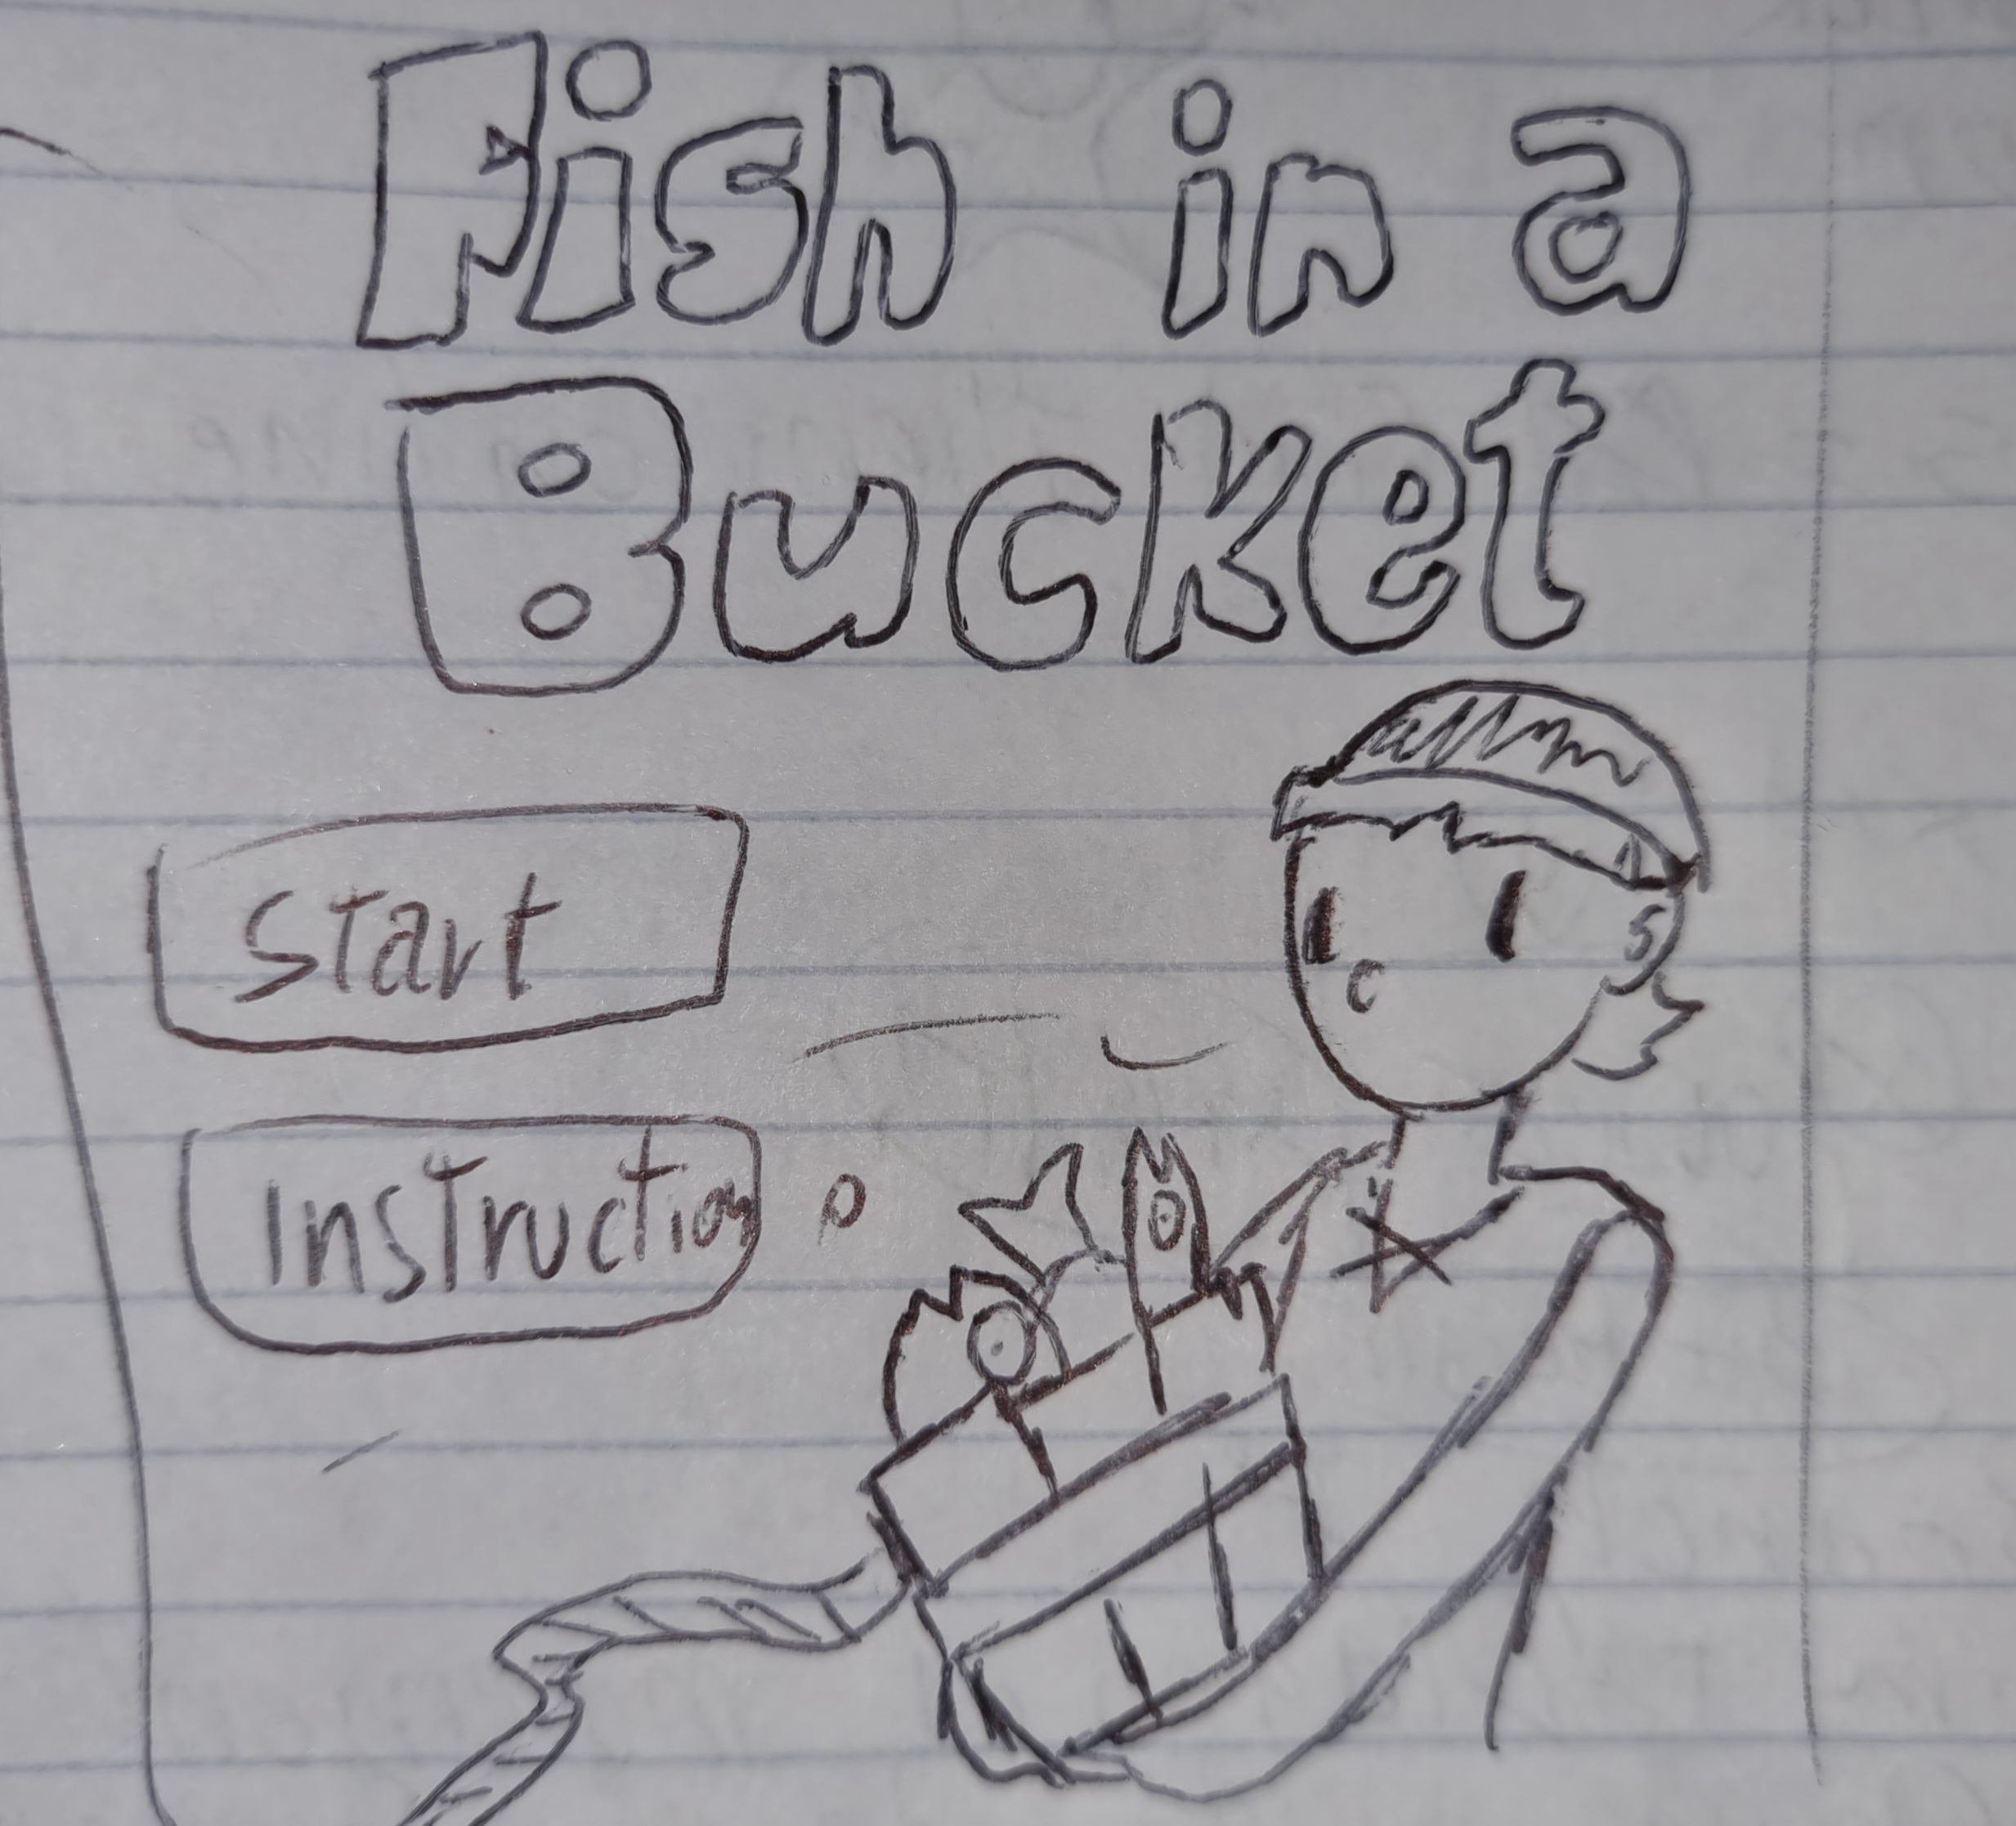 Fish in a
Bucket
Start
Instruction